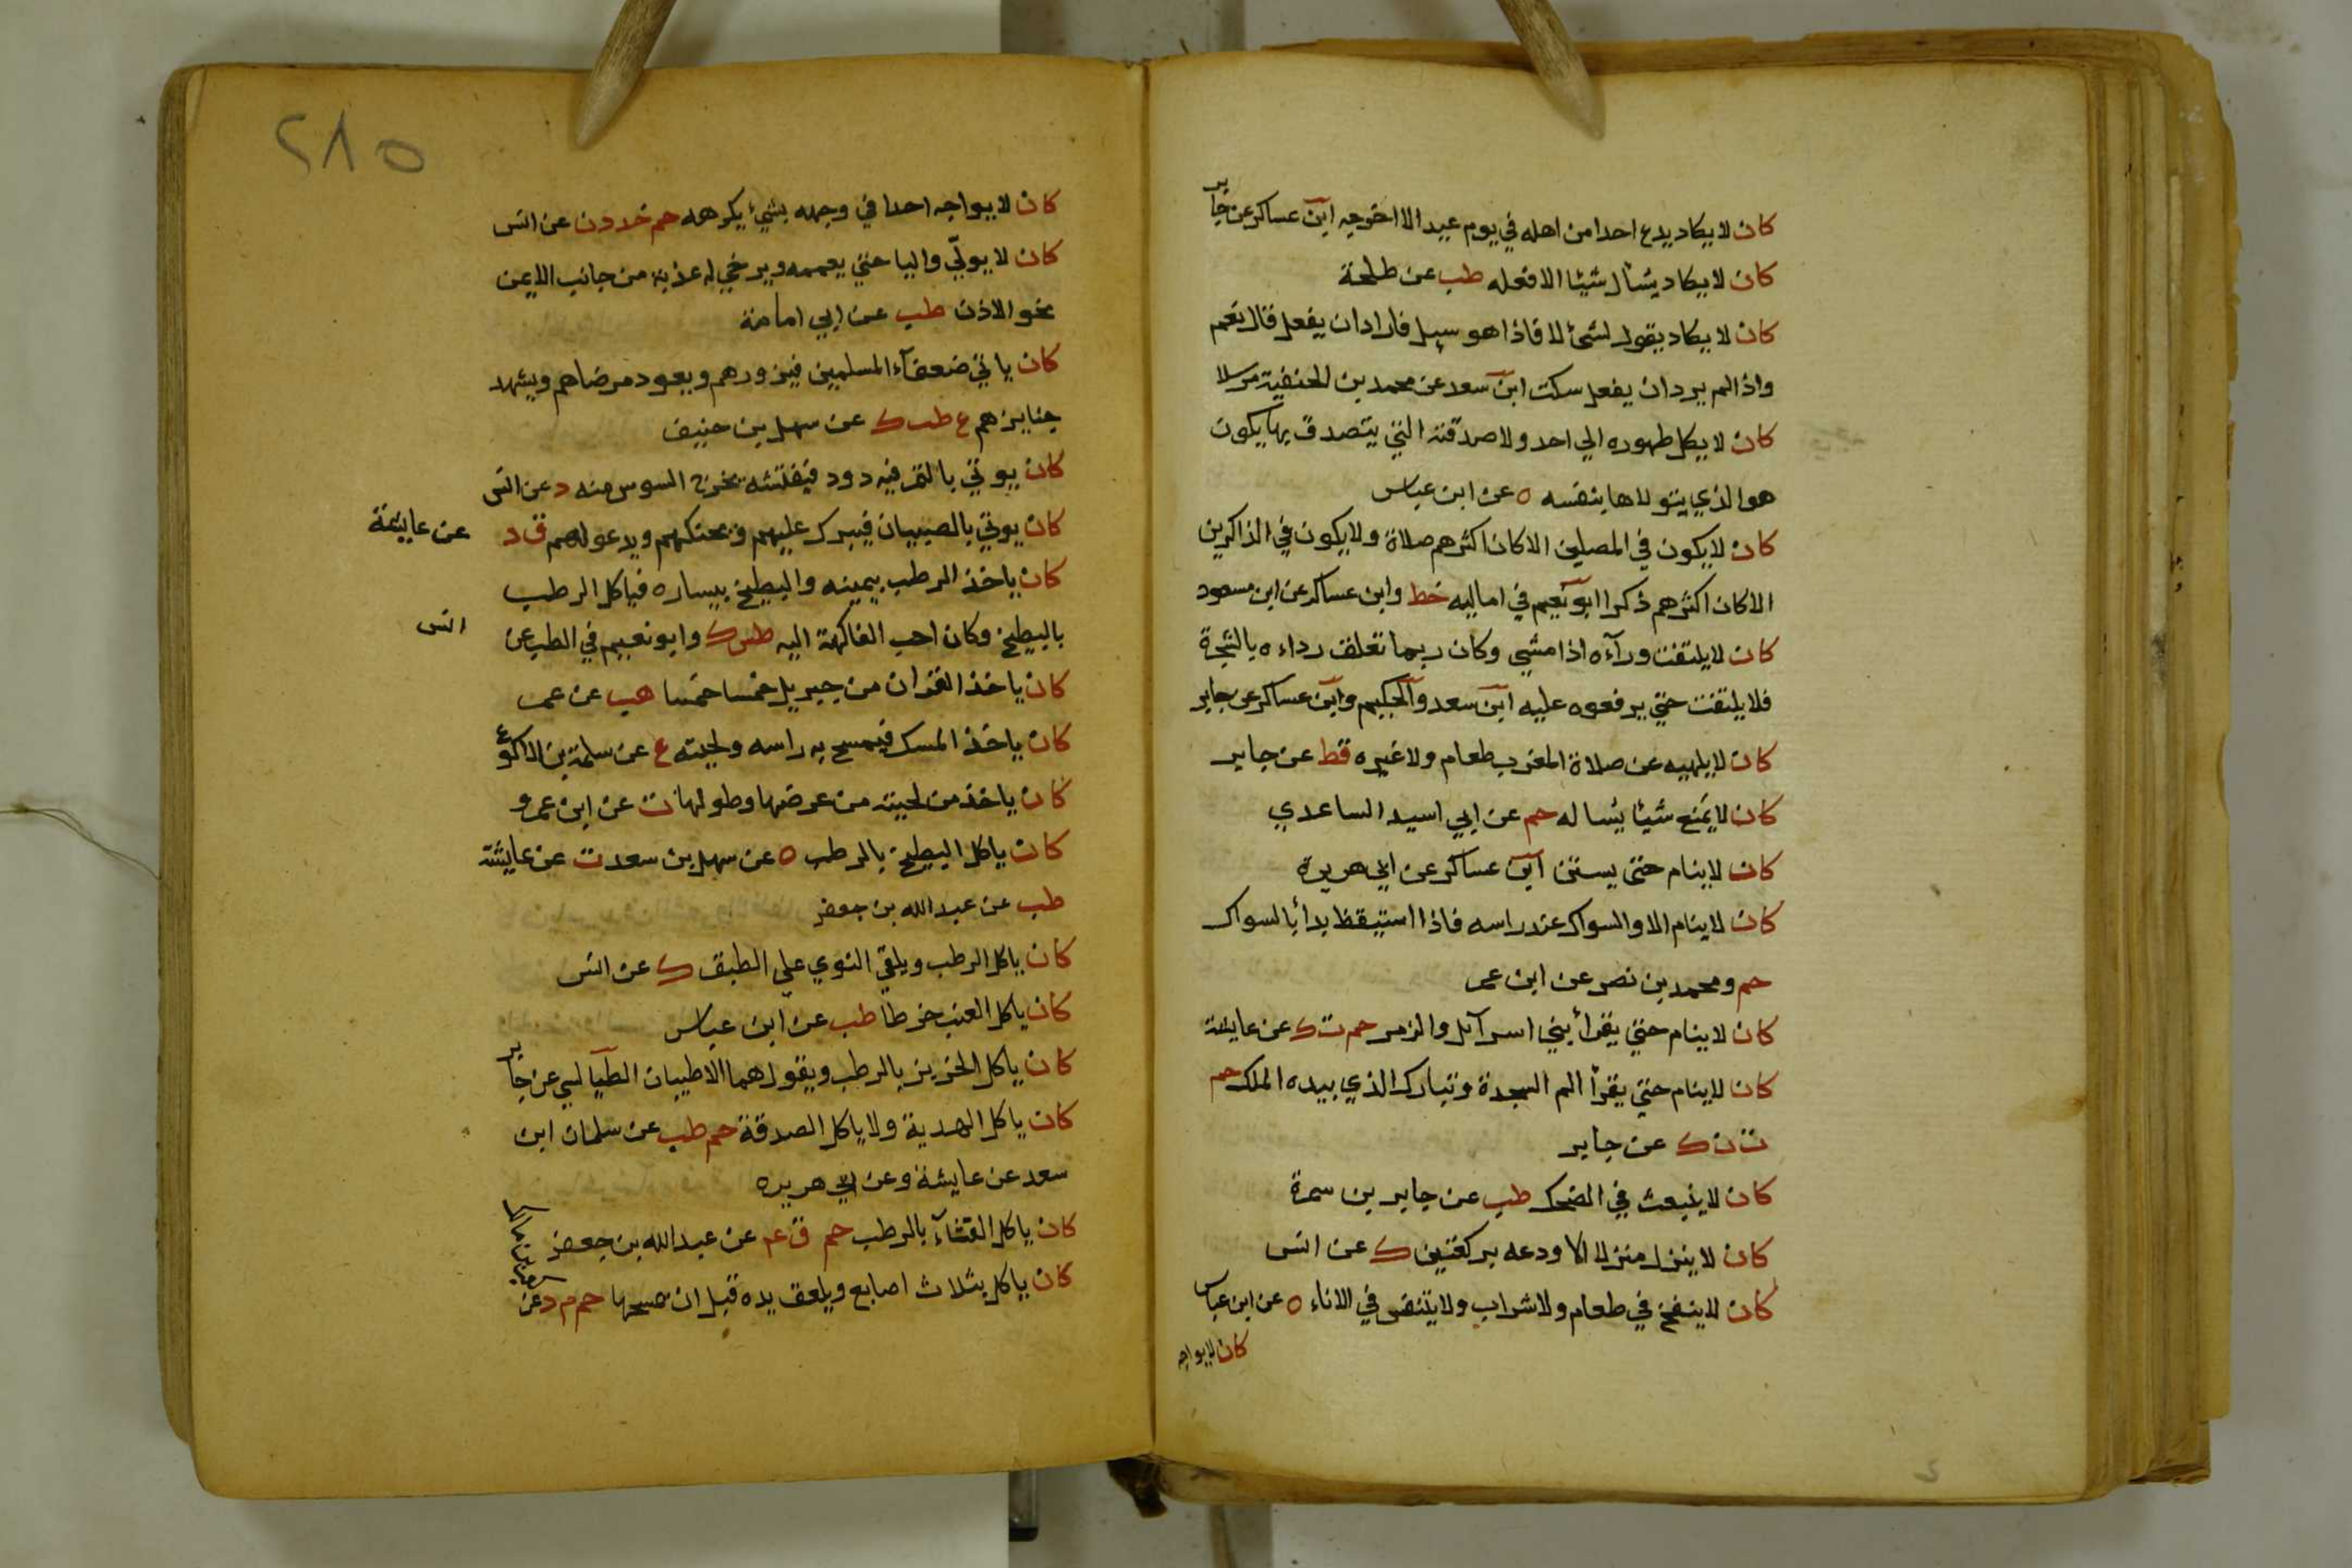 كان لا يكاد يدع احدا من اهله في يوم عيد الا اخرجه ابن عساكر عن جابر
كان لا يكاد يسأل شيئا الا فعله طب عن طلحة
كان لا يكاد يقول لشئ لا فاذا هو سيل فاراد ان يفعل قال نعم
واذا لم يرد ان يفعل سكت ابن سعد عن محمد بن الحنفية مرسلا
كان لا يكل طهوره الي احد ولا صدقته التي يتصدق بها يكون
هو الذي يتولاها بنفسه ه عن ابن عباس
كان لا يكون في المصلين الا كان اكثرهم صلاة ولا يكون في الذاكرين
الا كان اكثرهم ذكرا ابو نعيم في اماليه خط وابن عساكر عن ابن مسعود
كان لا يلتفت ورآءه اذا مشي وكان ربما تعلق رداءه بالشجرة
فلا يلتفت حتي يرفعوه عليه ابن سعد والحكيم وابن عساكر عن جابر
كان لا يلهيه عن صلاة المغرب طعام ولا غيره قط عن جابر
كان لا يمنع شيئا يسأله حم عن ابي اسيد الساعدي
كان لا ينام حتى يستن ابن عساكر عن ابي هريرة
كان لا ينام الا والسواك عند راسه فاذا استيقظ بدأ بالسواك
حم ومحمد بن نصر عن ابن عمر
كان لا ينام حتي يقرأ بني اسرآئل والزمر حم ت ك عن عايشة
كان لا ينام حتي يقرأ الم السجدة وتبارك الذي بيده الملك حم
ت ن ك عن جابر
كان لا ينبعث في الضحك طب عن جابر بن سمرة
كان لا ينزل منزلا الا ودعه بركعتين ك عن انس
كان لا ينفخ في طعام ولا شراب ولا يتنفس في الاناء ه عن ابن عباس
كان لا يواجه
٢٨٥
كان لا يواجه احدا في وجهه بشئ يكرهه حم خد د ن عن انس
كان لا يولّي واليا حتي يعممه ويرخي له عذبة من جانب الايمن
نحو الاذن طب عن ابي امامة
كان ياتي ضعفآء المسلمين فيزورهم ويعود مرضاهم ويشهد
جنايزهم ع طب ك عن سهل بن حنيف
كان يوتي بالتمر فيه دود فيفتشه يخرج السوس منه د عن انس
كان يوتي بالصبيان فيبرك عليهم ويحنكهم ويدعو لهم ق د عن عايشة
كان ياخذ الرطب بيمينه والبطيخ بيساره فياكل الرطب
بالبطيخ وكان احب الفاكهة اليه طس ك وابو نعيم في الطب عن انس
كان ياخذ القران من جبريل خمسا خمسا هب عن عمر
كان ياخذ المسك فيمسح به راسه ولحيته ع عن سلمة بن الاكوع
كان ياخذ من لحيته من عرضها وطولها ت عن ابن عمرو
كان ياكل البطيخ بالرطب ه عن سهل بن سعد ت عن عايشة
طب عن عبد الله بن جعفر
كان ياكل الرطب ويلقي النوي علي الطبق ك عن انس
كان ياكل العنب خرطا طب عن ابن عباس
كان ياكل الخربز بالرطب ويقول هما الاطيبان الطيالسي عن جابر
كان ياكل الهدية ولا ياكل الصدقة حم طب عن سلمان ابن
سعد عن عايشة وعن ابي هريره
كان ياكل القثآء بالرطب حم ق عم عن عبد الله بن جعفر
كان ياكل بثلاث اصابع ويلعق يده قبل ان يمسحها حم م د عن